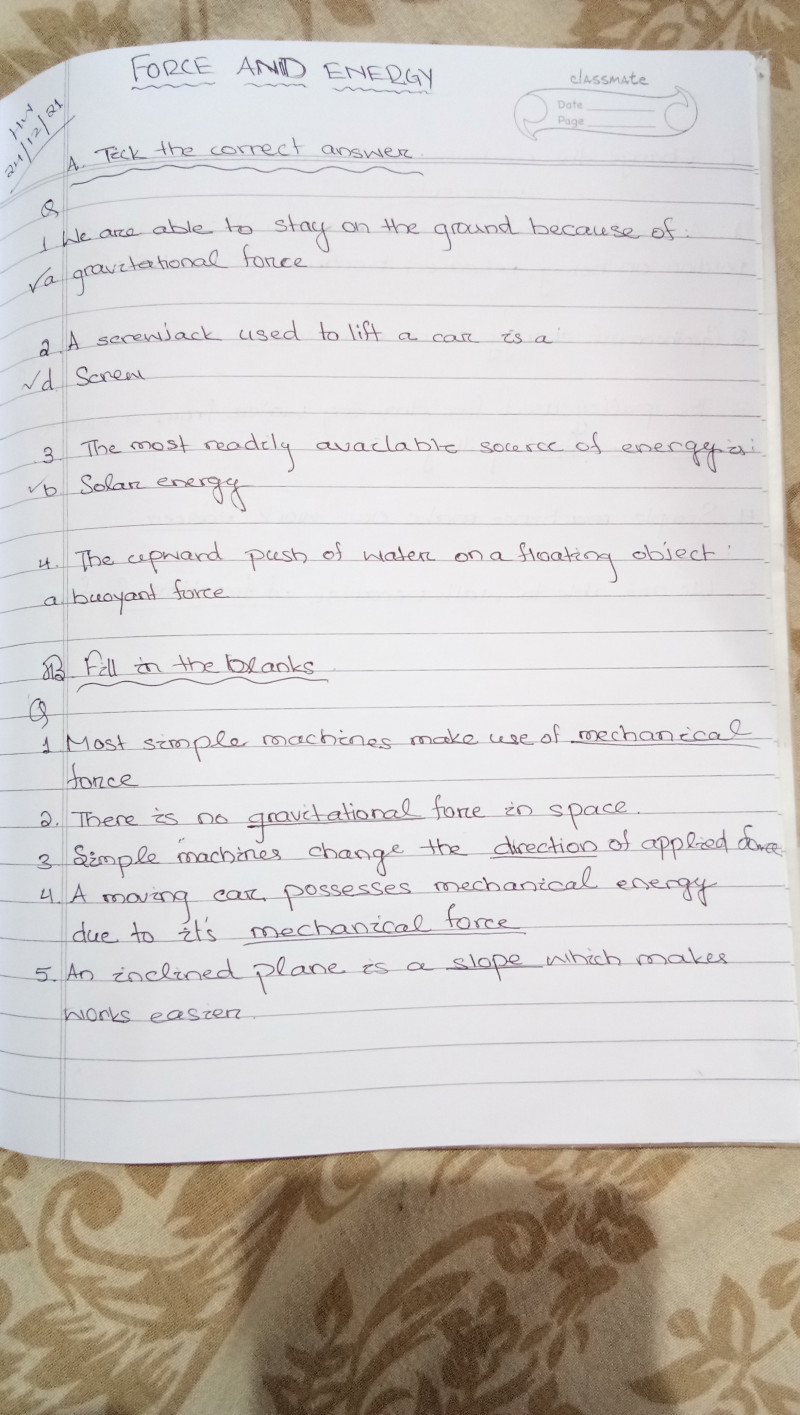 FORCE AND ENERGY
classmate
Date
Page
HW
24/12/21
A. Tick the correct answer.
Q
1 We are able to stay on the ground because of:
√a gravitational force
2. A screwjack used to lift a car is a
√d Screw
3 The most readily available source of energy is:
√b Solar energy
4. The upward push of water on a floating object:
a buoyant force
B Fill in the blanks
Q
1 Most simple machines make use of mechanical
force
2. There is no gravitational force in space.
3 Simple machines change the direction of applied force
4. A moving car possesses mechanical energy
due to it's mechanical force
5. An inclined plane is a slope which makes
works easier.